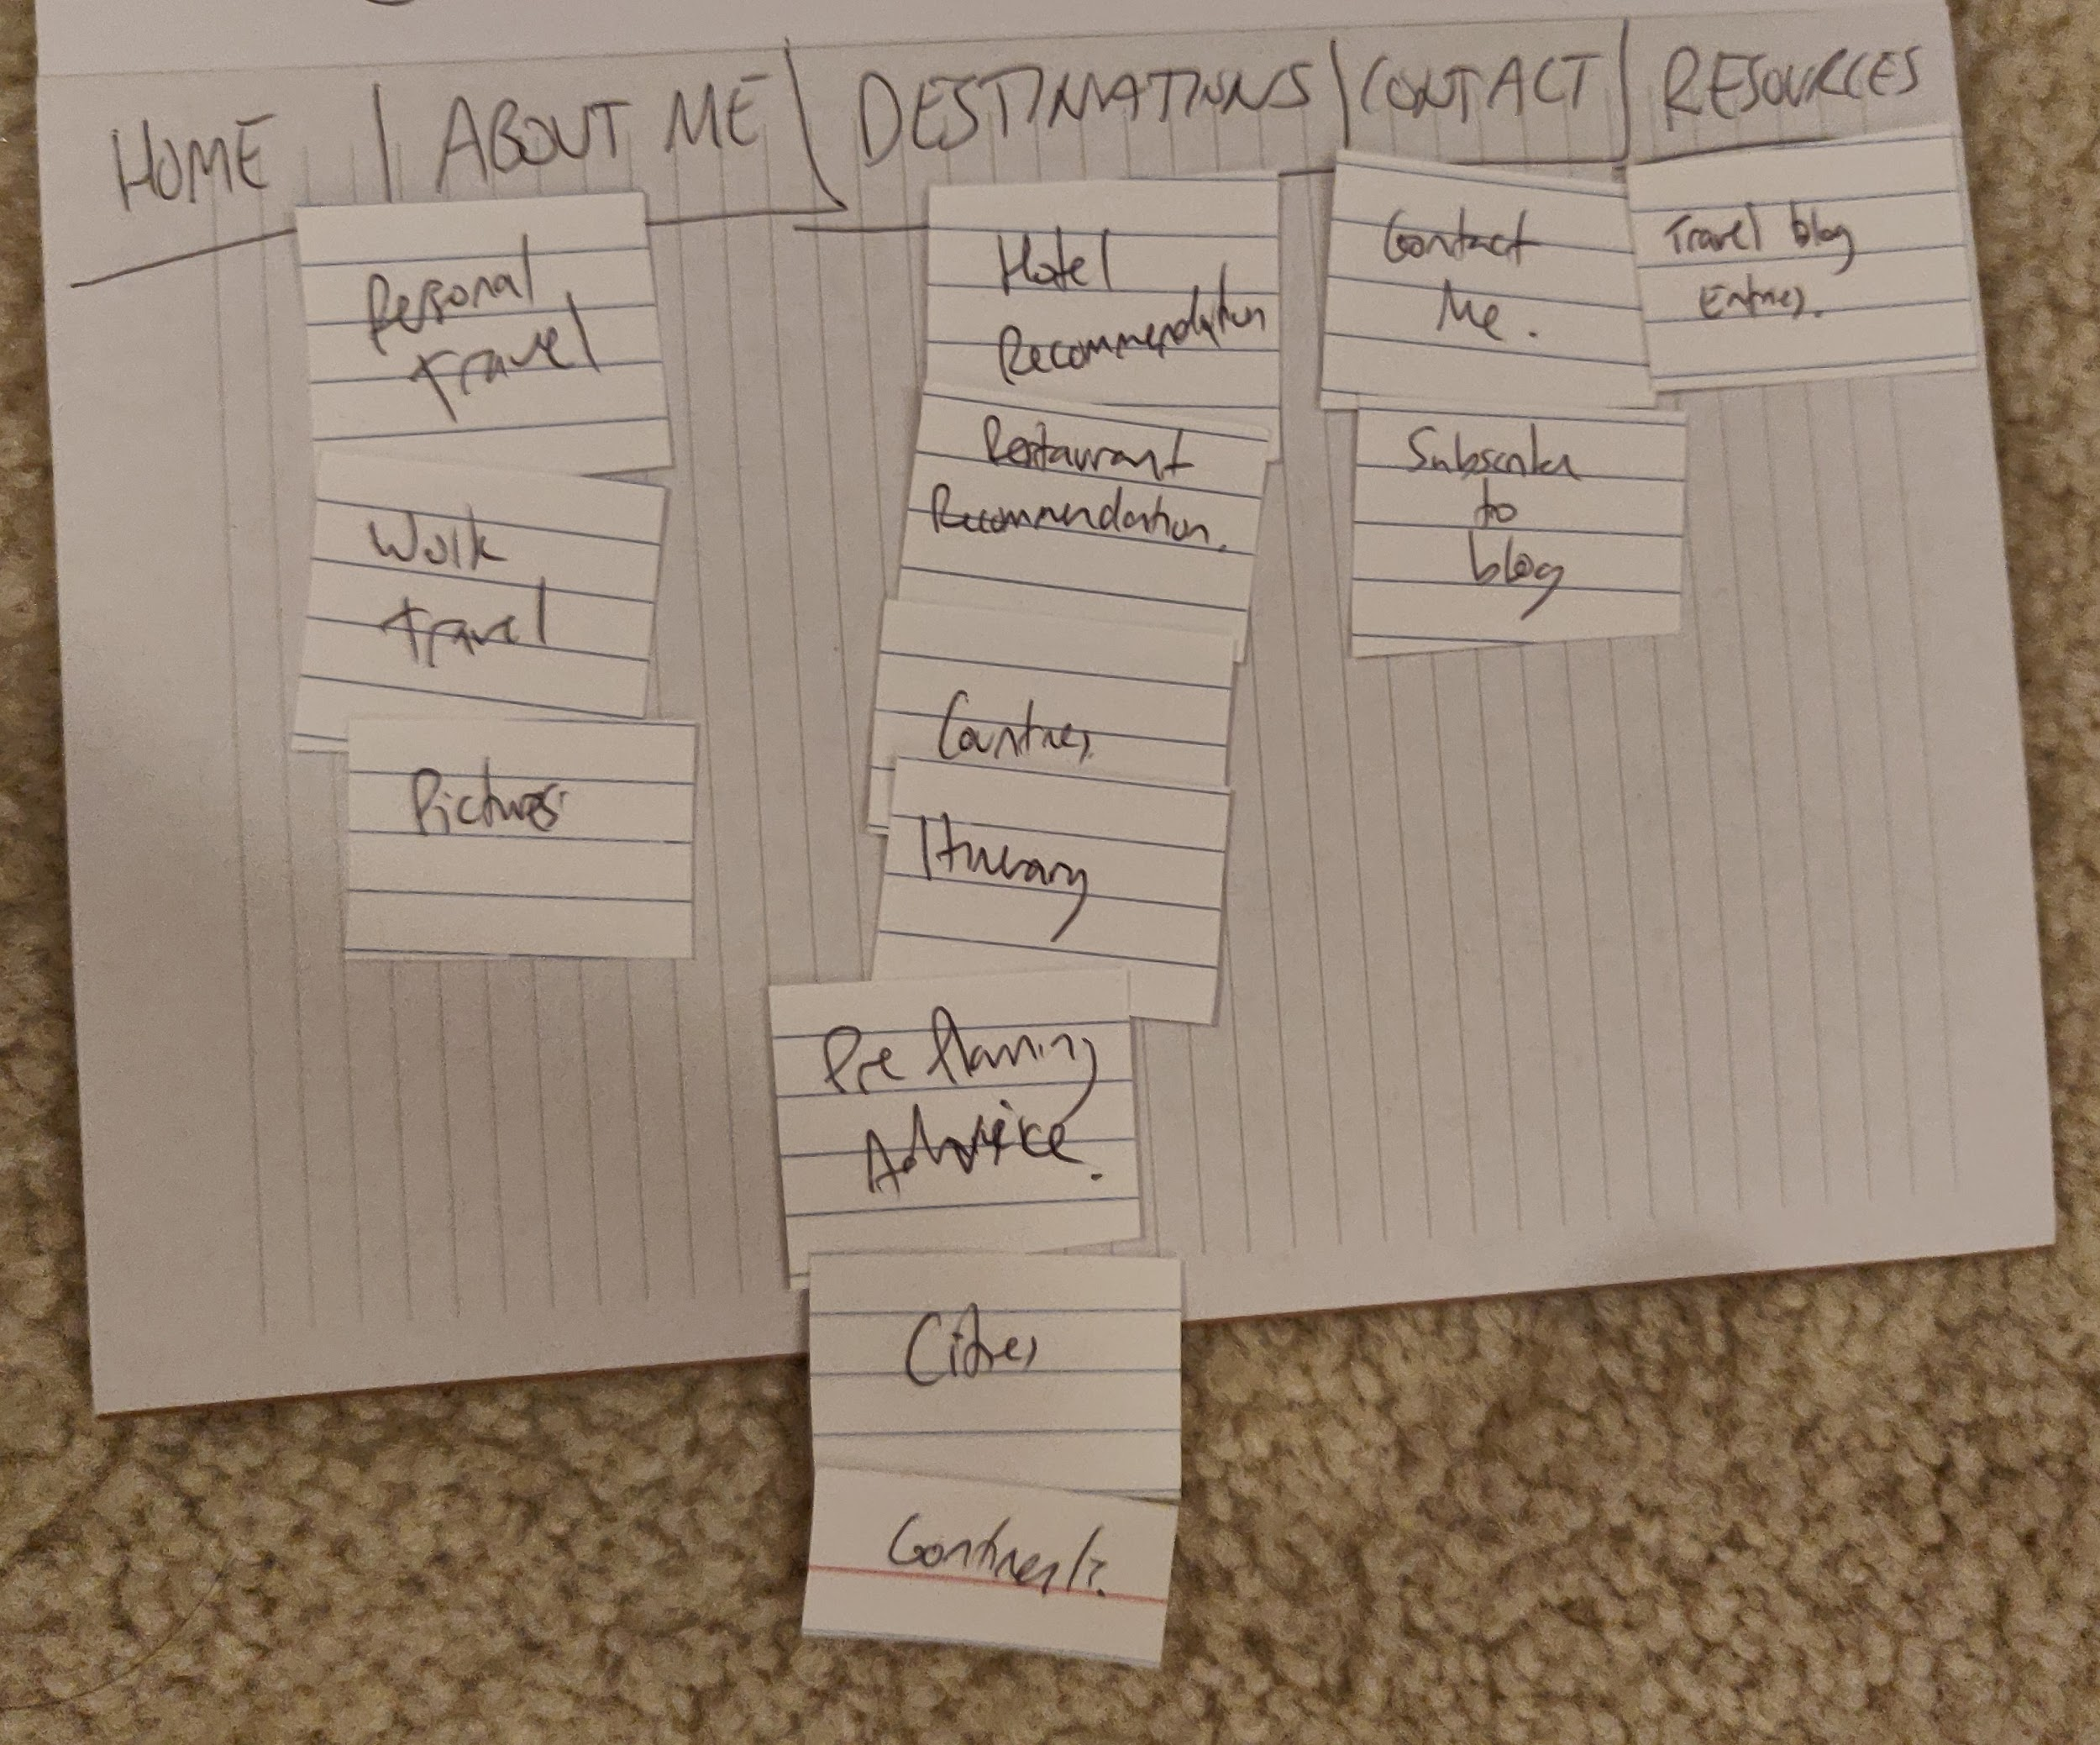 HOME | ABOUT ME | DESTINATIONS | CONTACT | RESOURCES
Personal
travel
Work
travel
Pictures
Hotel
Recommendation
Restaurant
Recommendation.
Countries
Itinerary
Pre Planning
Advice.
Cities
Continents
Contact
Me.
Subscribe
to
blog
Travel blog
Entries.